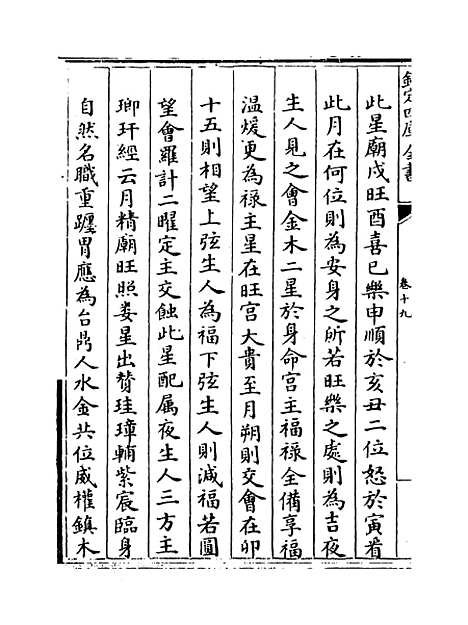 欽定四庫全書
卷十九
此星廟戌旺酉喜巳樂申順於亥丑二位怒於寅看
此月在何位則為安身之所若旺樂之處則為吉夜
生人見之會金木二星於身命宮主福祿全備享福
温煖更為祿主星在旺宮大貴至月朔則交會在卯
十五則相望上弦生人為福下弦生人則減福若圓
望會羅計二曜定主交蝕此星配属夜生人三方主
瑯玕經云月精廟旺照娄星出賛珪璋輔紫宸臨身
自然名職重躔胃應為台鼎人水金共位威權鎮木